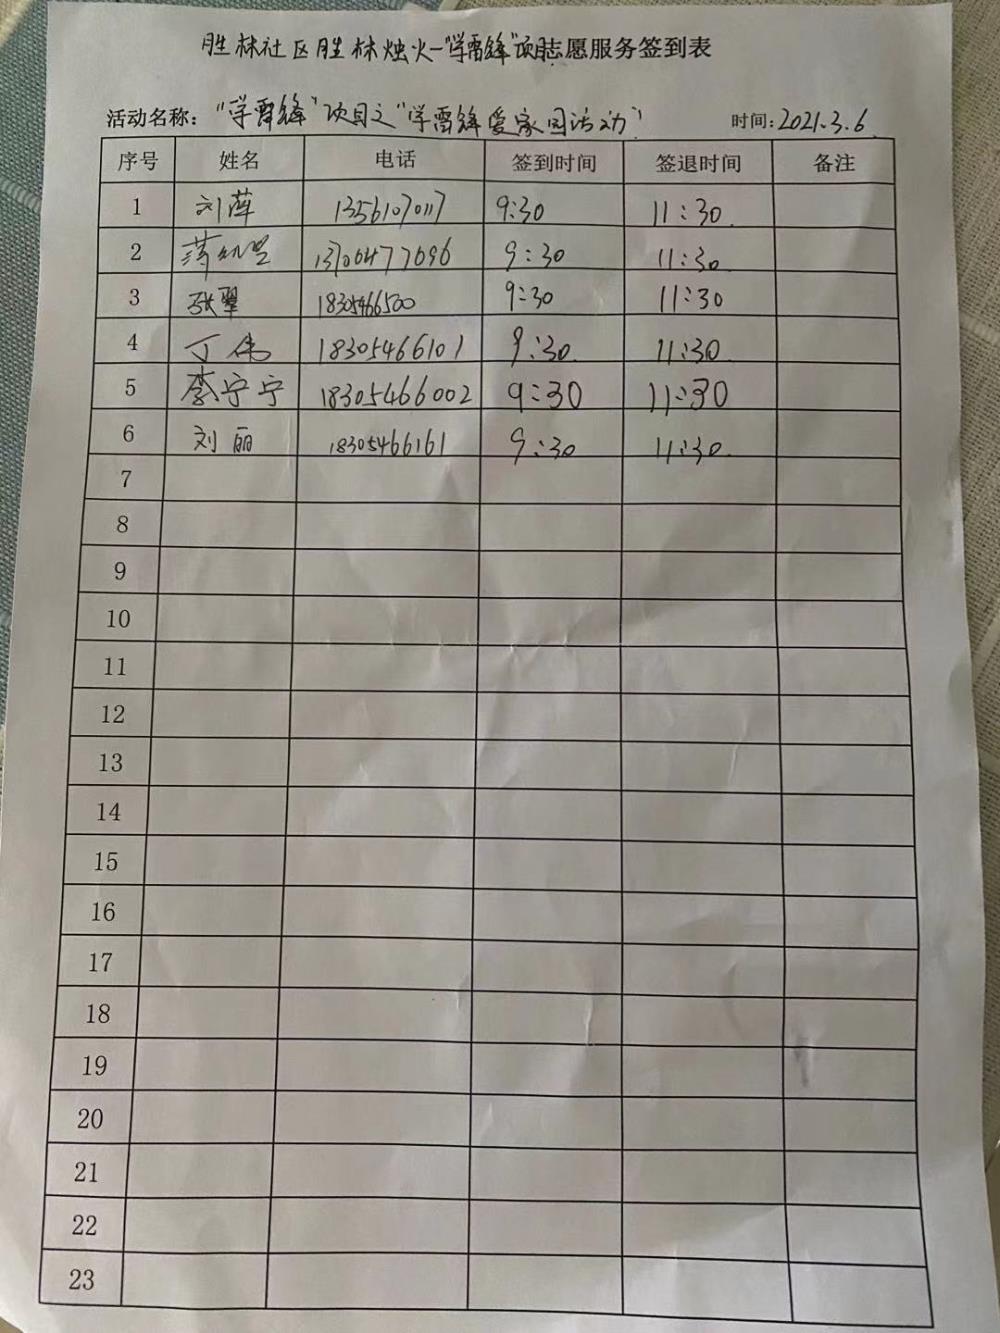 胜林社区胜林烛火—"学雷锋"项目志愿服务签到表
活动名称："学雷锋"项目之"学雷锋爱家园活动" 时间:2021.3.6
序号 姓名 电话 签到时间 签退时间 备注
1 刘萍 13561070117 9:30 11:30
2 13706477696 9:30 11:30
3 张翠 18305466500 9:30 11:30
4 丁伟 18305466101 9:30 11:30
5 李宁宁 18305466002 9:30 11:30
6 刘丽 18305466161 9:30 11:30
7
8
9
10
11
12
13
14
15
16
17
18
19
20
21
22
23